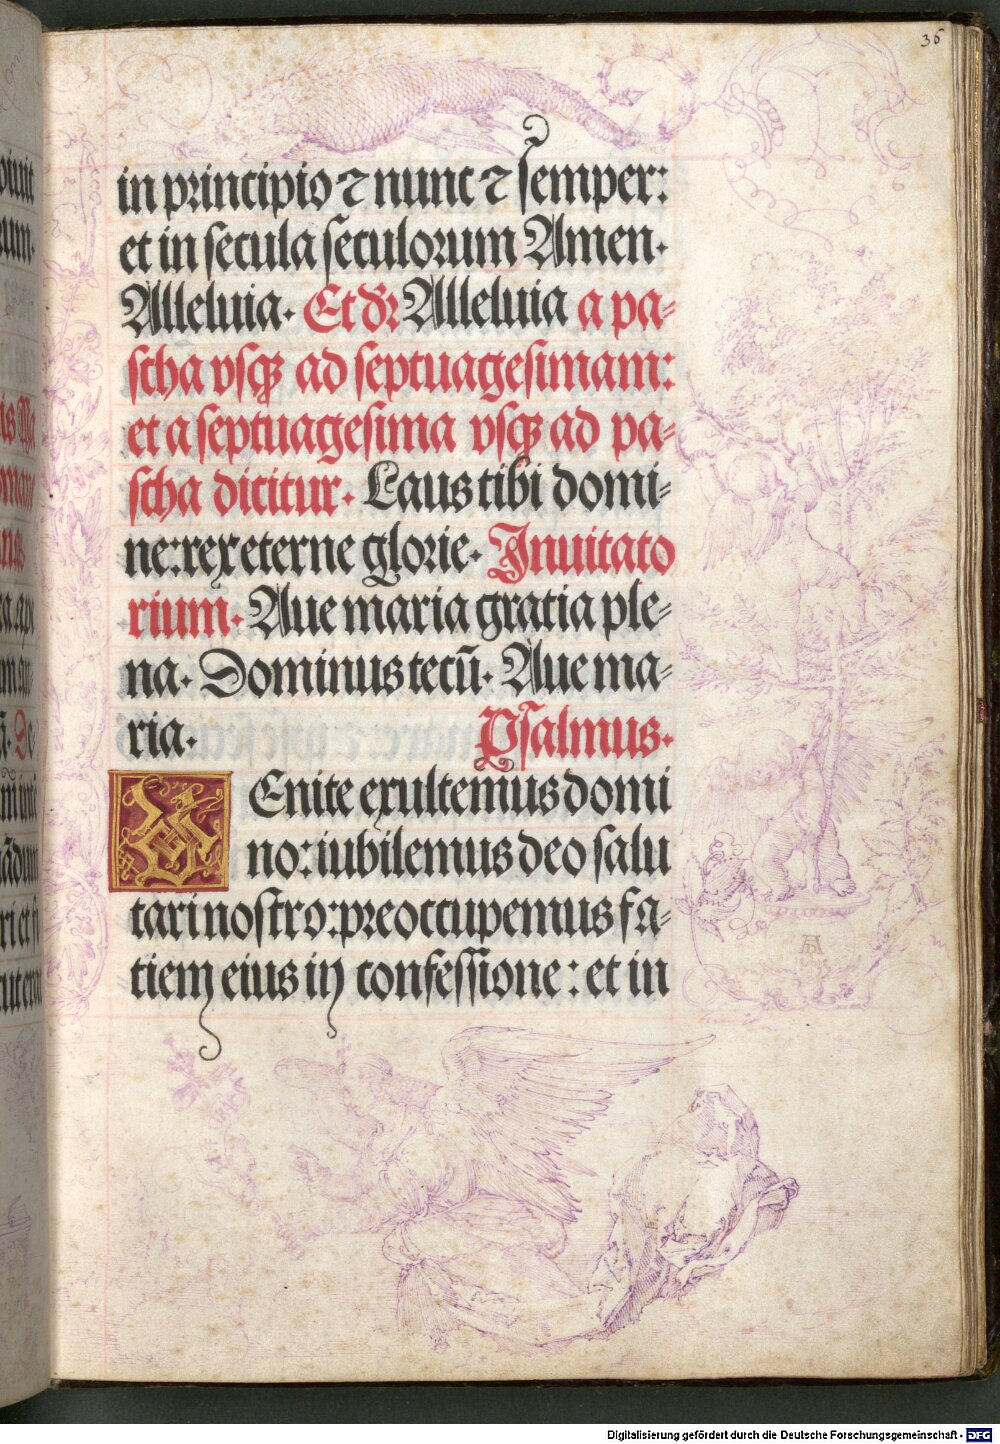 36
in principio ⁊ nunc ⁊ semper:
et in secula seculorum Amen.
Alleluia. Et dr̄ Alleluia a pa=
scha vsqꝫ ad septuagesimam:
et a septuagesima vsqꝫ ad pa=
scha dicitur. Laus tibi domi=
ne: rex eterne glorie. Inuitato
rium. Aue maria gratia ple=
na. Dominus tecū. Aue ma=
ria. Psalmus.
VEnite exultemus domi
no: iubilemus deo salu
tari nostro: preoccupemus fa=
ciem eius in confessione: et in
AD
Digitalisierung gefördert durch die Deutsche Forschungsgemeinschaft - DFG